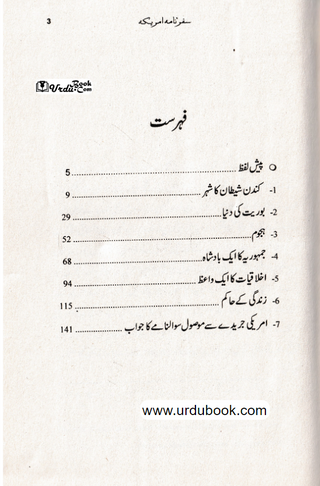 سفرنامہ امریکہ 3
UrduBook.Com
فہرست
پیش لفظ 5
1- کندن شیطان کا شہر 9
2- بوریت کی دنیا 29
3- ہجوم 52
4- جمہوریہ کا ایک بادشاہ 68
5- اخلاقیات کا ایک واعظ 94
6- زندگی کے حاکم 115
7- امریکی جریدے سے موصول سوالنامے کا جواب 141
www.urdubook.com